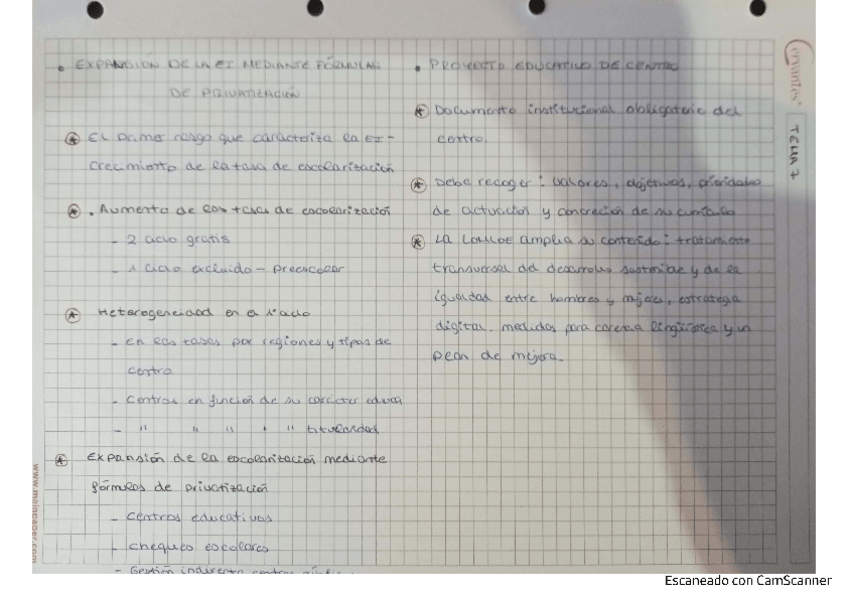 • EXPANSIÓN DE LA EI MEDIANTE FÓRMULAS
DE PRIVATIZACIÓN
* El primer rasgo que caracteriza la EI -
crecimiento de la tasa de escolarización
* . Aumento de las tasas de escolarización
- 2 ciclo gratis
- 1 ciclo excluido - preescolar
* Heterogeneidad en el 1º ciclo
- en las tasas por regiones y tipos de
centro
- Centros en función de su carácter educa
- " " " " " titularidad
* Expansión de la escolarización mediante
fórmulas de privatización
- Centros educativos
- cheques escolares
- Gestión indirecta centros
• PROYECTO EDUCATIVO DE CENTRO
* Documento institucional obligatorio del
centro.
* Debe recoger: valores, objetivos, prioridades
de actuación y concreción de su currículo
* La LOMLOE amplía su contenido: tratamiento
transversal del desarrollo sostenible y de la
igualdad entre hombres y mujeres, estrategia
digital, medidas para lingüística y un
plan de mejora.
Cervantes
TEMA 7
www.mainpaper.com
Escaneado con CamScanner